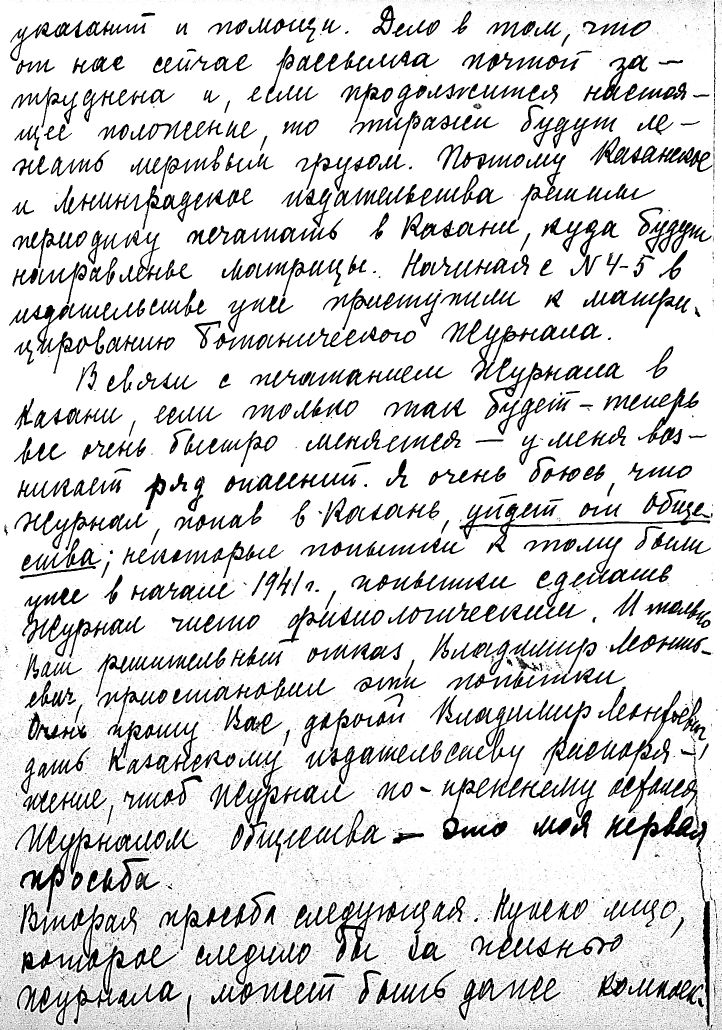 указаний и помощи. Дело в том, что
от нас сейчас рассылка почтой за-
труднена и, если продолжится настоя-
щее положение, то тиражи будут ле-
жать мертвым грузом. Поэтому Казанское
и Ленинградское издательства решили
периодику печатать в Казани, куда будут
направленье матрицы. Начиная с N 4-5 в
издательстве уже приступили к матри-
цированию Ботанического Журнала.
В связи с печатанием Журнала в
Казани, если только так будет - теперь
все очень быстро меняется - у меня воз-
никает ряд опасений. Я очень боюсь, что
Журнал, попав в Казань, уйдет от Обще-
ства; некоторые попытки к тому были
уже в начале 1941 г., попытки сделать
Журнал чисто физиологическим. И только
Ваш решительный отказ, Владимир Леонть-
евич, приостановил эти попытки
Очень прошу Вас, дорогой Владимир Леонтьевич,
дать Казанскому издательству распоря-
жение, чтоб Журнал по-прежнему остался
Журналом Общества - это моя первая
просьба.
Вторая просьба следующая. Нужно лицо,
которое следило бы за жизнью
Журнала, может быть даже комплек-